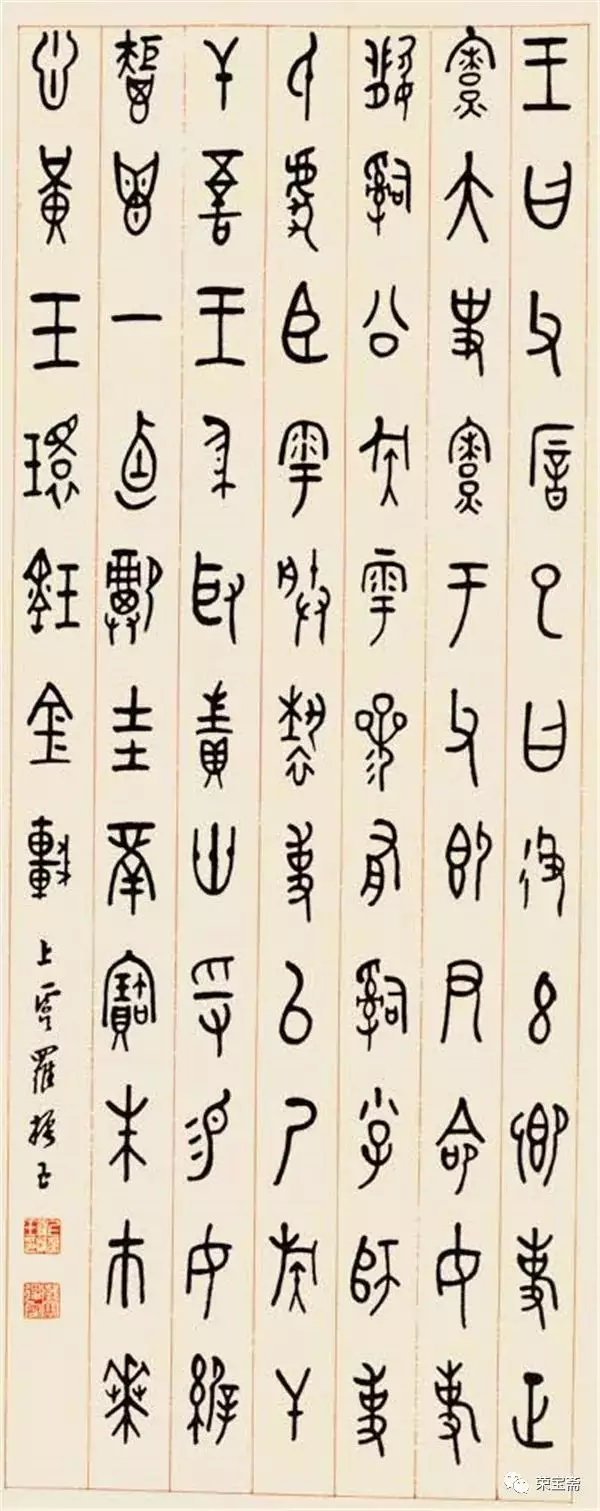 王曰父厝巳曰彶茲卿事
寮大史寮于父即尹命女
嗣公族雩參有嗣小子師
氏虎臣雩朕褻事以乃族干
吾王身取責寽易女
鬯一卣圭寶朱巿
悤黃玉環金車 上虞羅振玉
荣宝斋